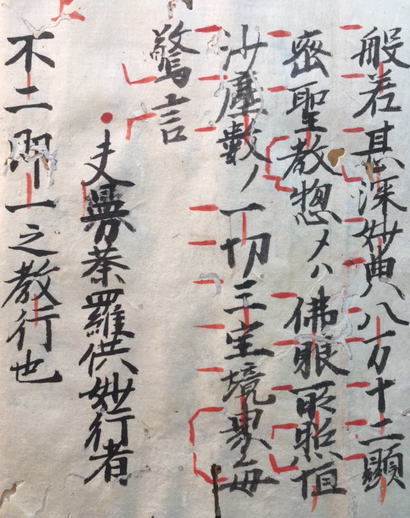 般若甚深妙典八万十二顕
密聖教惣メハ佛眼所照恒
沙塵數ノ一切三宝境界毎
驚言
夫曼荼羅供妙行者
不二即一之教行也